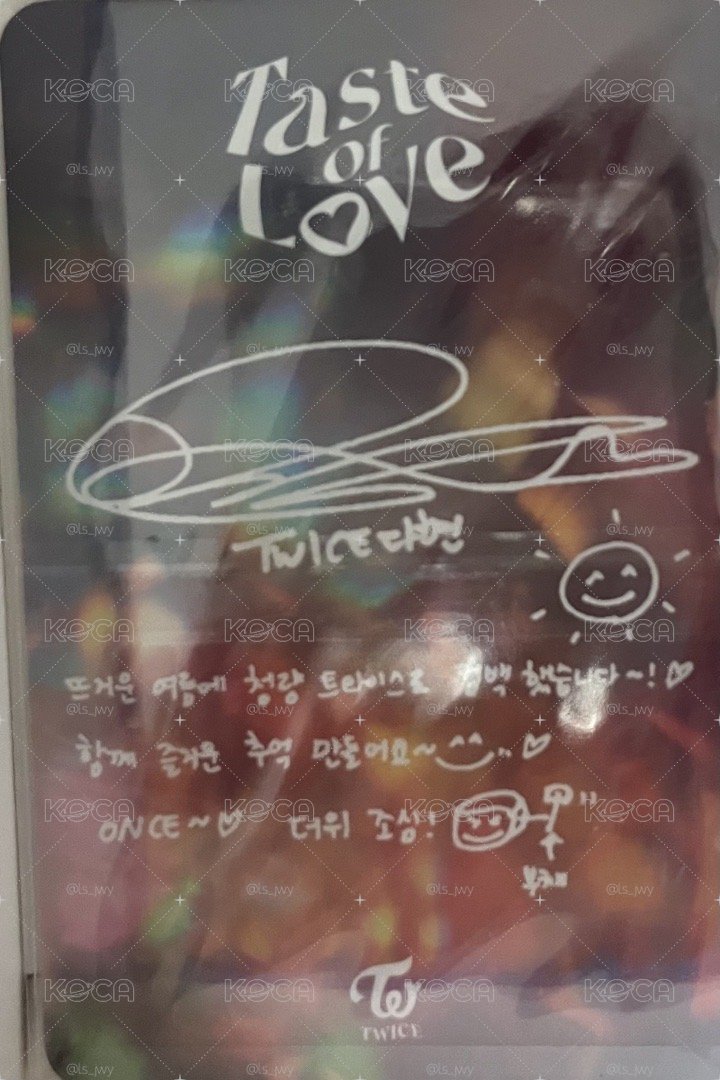 Taste
of
Love
TWICE 다현
뜨거운 여름에 청량 트와이스로 컴백 했습니다~!♡
함께 즐거운 추억 만들어요~^^..♡
ONCE~♡ 더위 조심!
부채
TWICE
KOCA
@ls_jwy